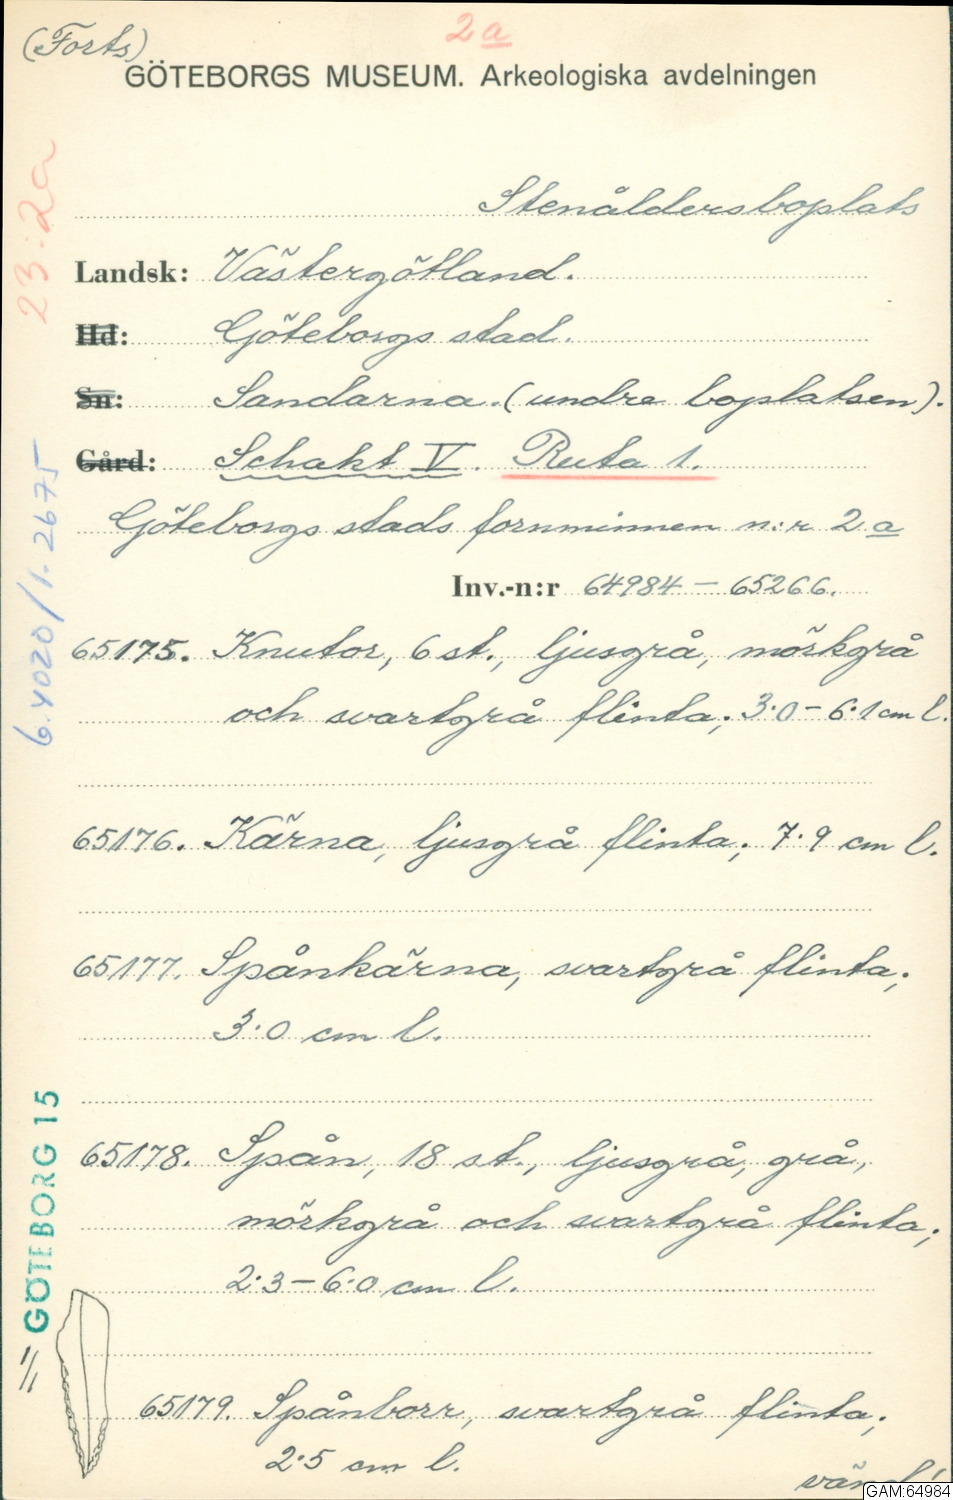 (Forts)
2a
GÖTEBORGS MUSEUM. Arkeologiska avdelningen
23:2a
Stenåldersboplats
Landsk: Västergötland.
Hd: Göteborgs stad.
Sn: Sandarna. (undre boplatsen).
Gård: Schakt V. Ruta 1.
Göteborgs stads fornminnen n:r 2a
6.4020/1.2675
Inv.-n:r 64984 – 65266.
65175. Knutor, 6 st., ljusgrå, mörkgrå
och svartgrå flinta; 3·0 – 6·1 cm l.
65176. Kärna, ljusgrå flinta; 7·9 cm l.
65177. Spånkärna, svartgrå flinta;
3·0 cm l.
GÖTEBORG 15
65178. Spån, 18 st., ljusgrå, grå,
mörkgrå och svartgrå flinta;
2·3 – 6·0 cm l.
1/1
65179. Spånborr, svartgrå flinta;
2·5 cm l.
vänd!
GAM:64984